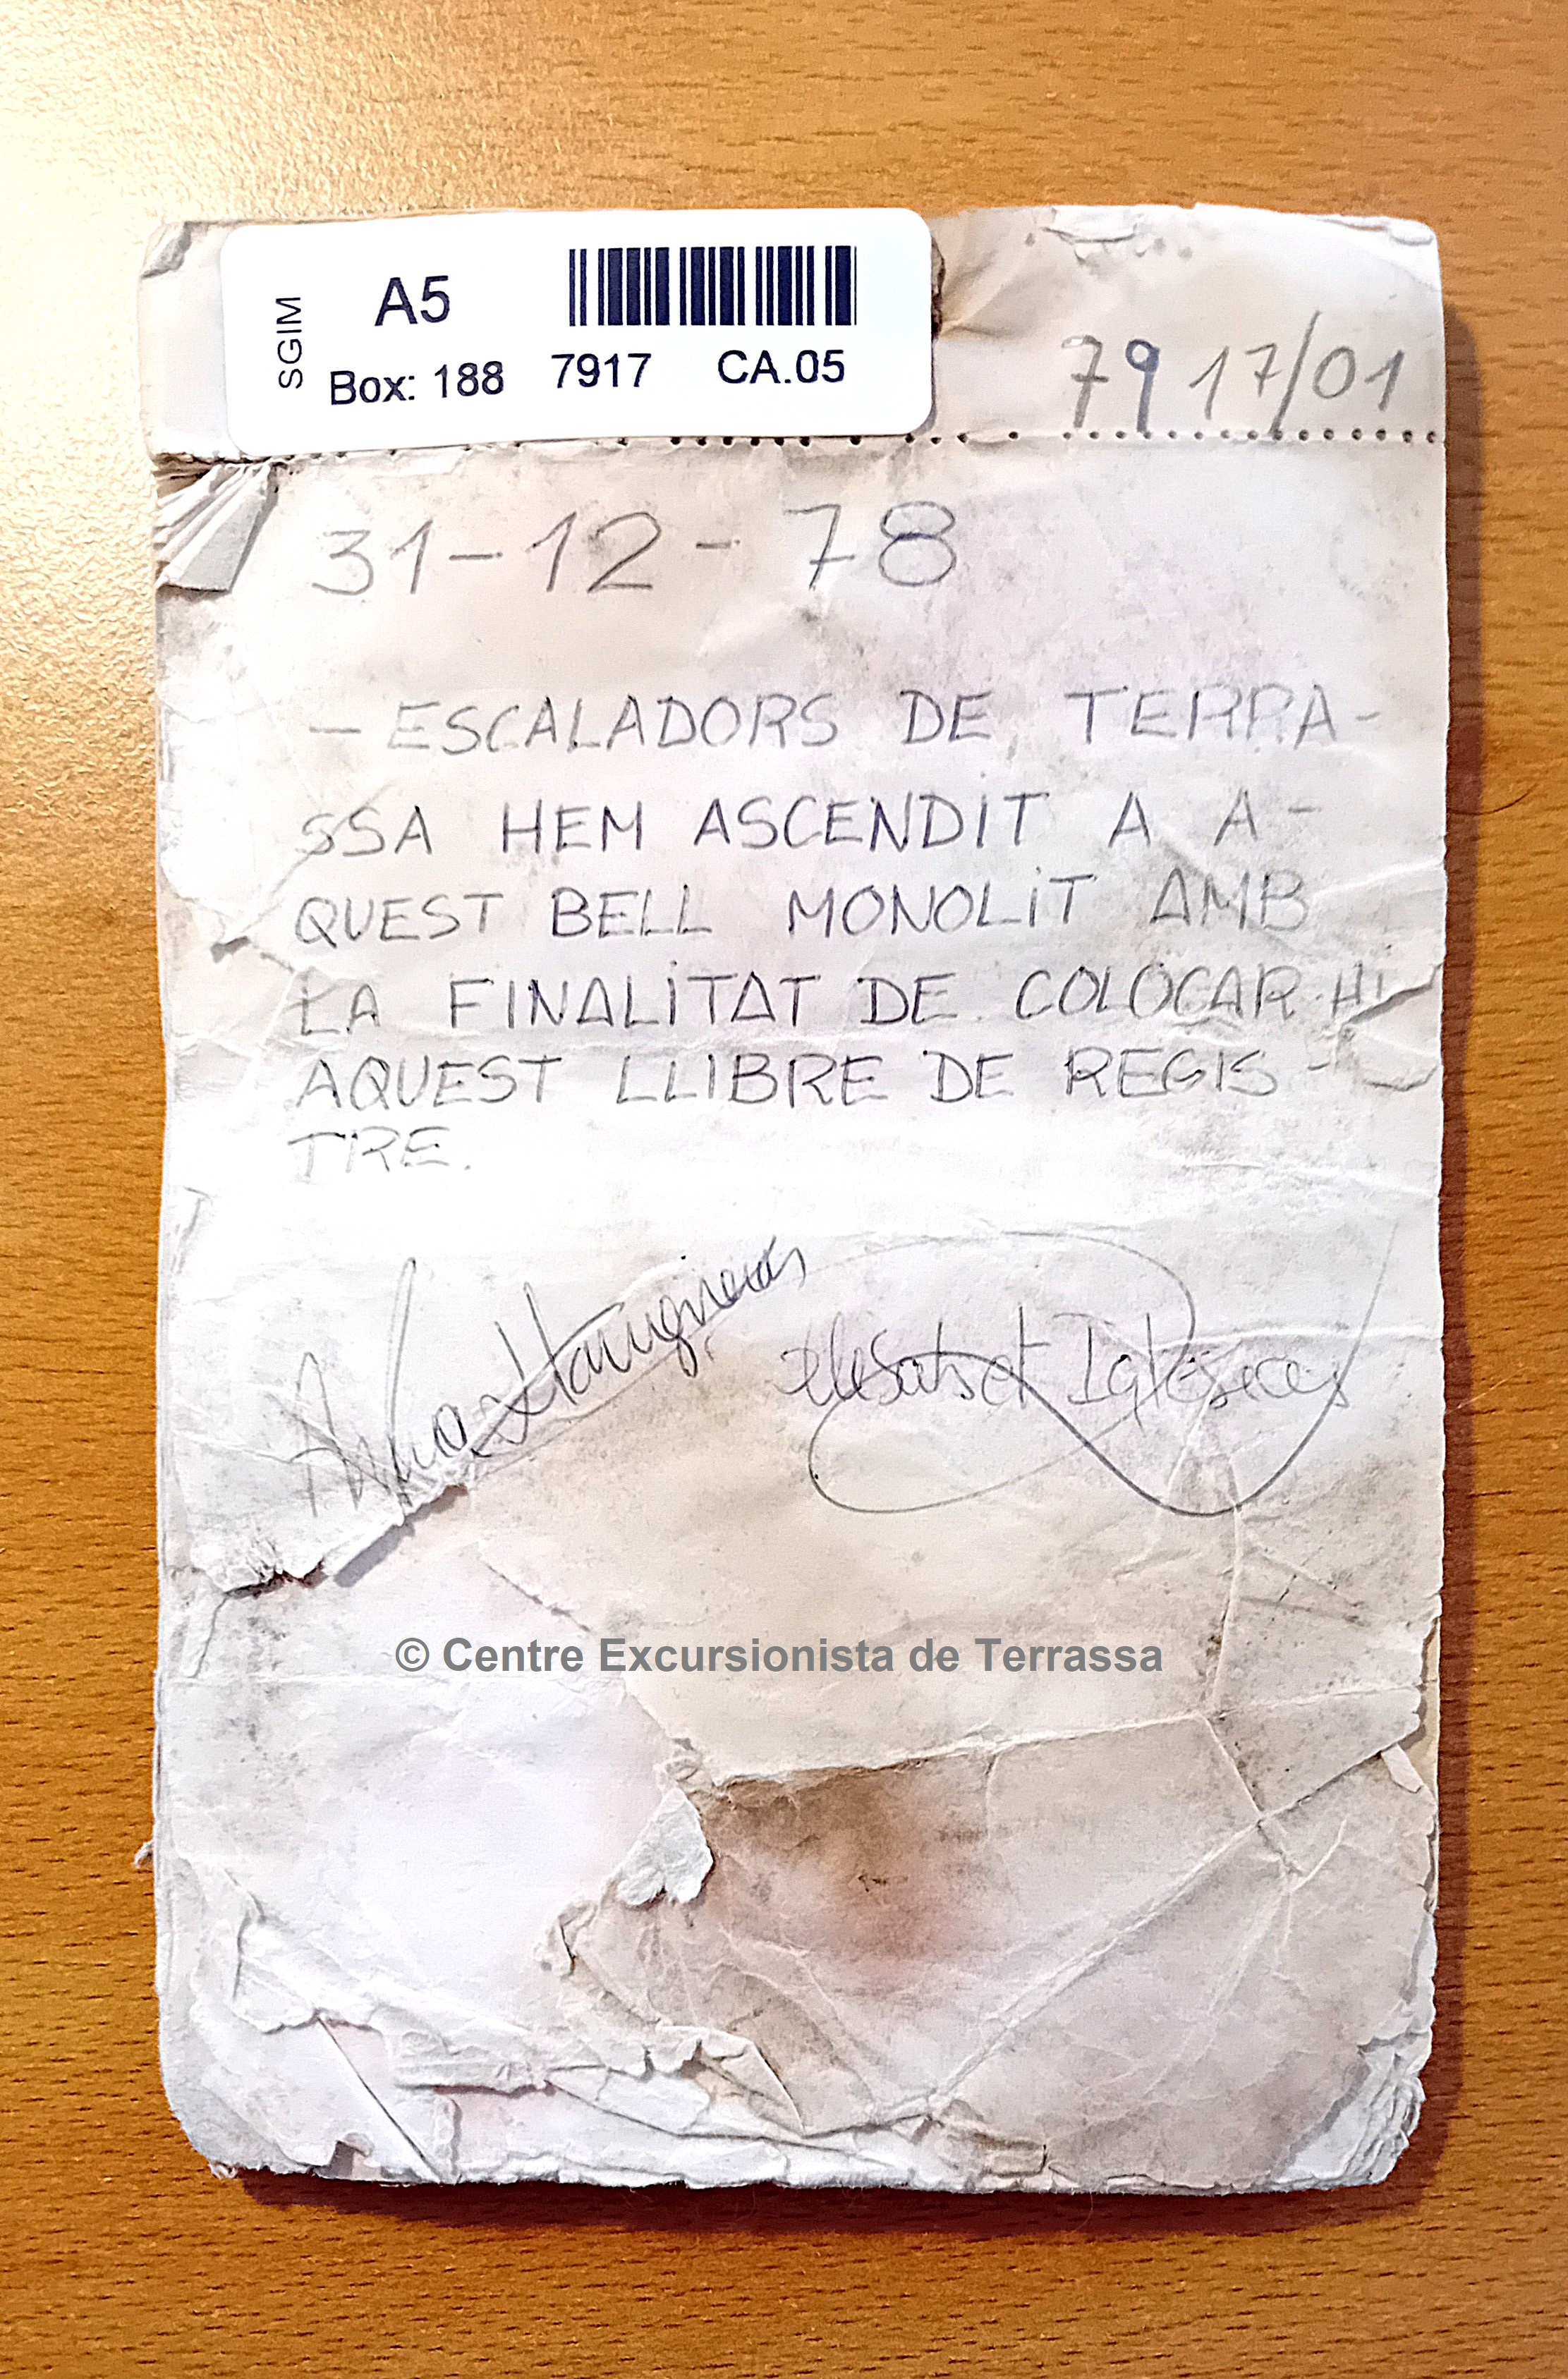 SGIM
A5
Box: 188 7917 CA.05
7917/01
31-12-78
- ESCALADORS DE TERRA-
SSA HEM ASCENDIT A A-
QUEST BELL MONOLIT AMB
LA FINALITAT DE COLOCAR-HI
AQUEST LLIBRE DE REGIS-
TRE.
Iglesias
© Centre Excursionista de Terrassa